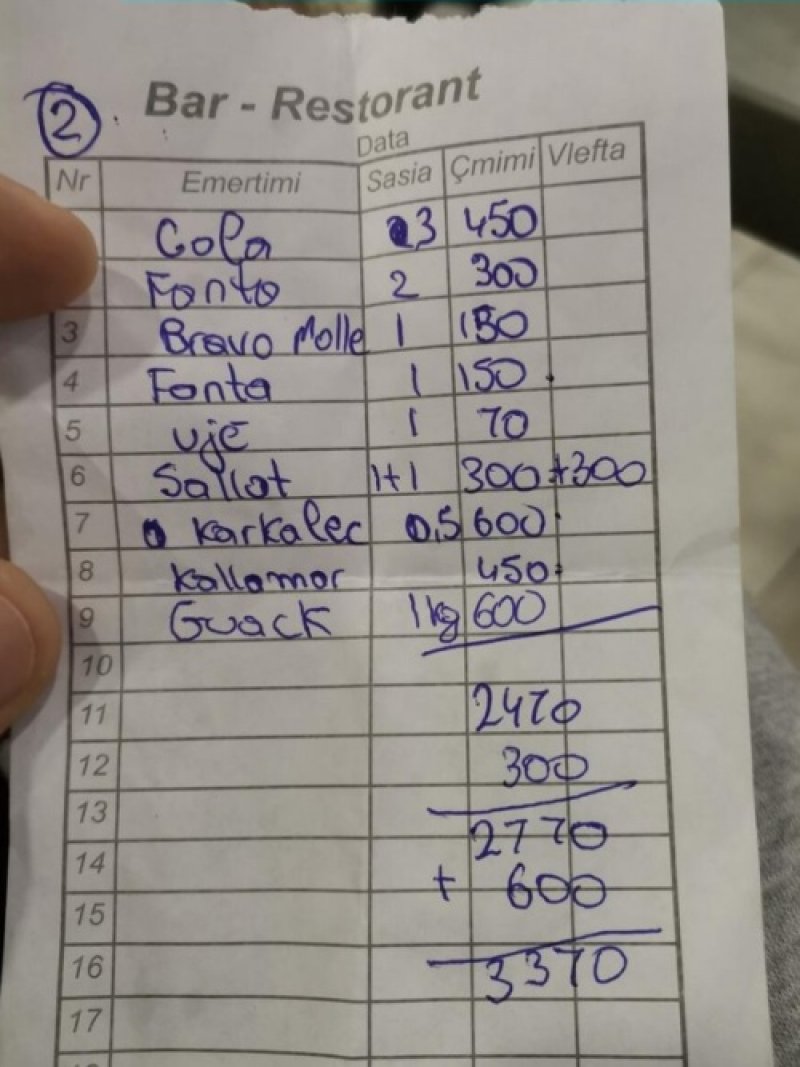 2
Bar - Restorant
Data
Nr Emertimi Sasia Çmimi Vlefta
Cola 3 450
Fonto 2 300
3 Bravo Molle 1 150
4 Fonta 1 150
5 uje 1 70
6 Sallot 1+1 300 +300
7 Karkalec 0,5 600
8 Kallamor 450
9 Guack 1kg 600
10
11 2470
12 300
13 2770
14 + 600
15
16 3370
17